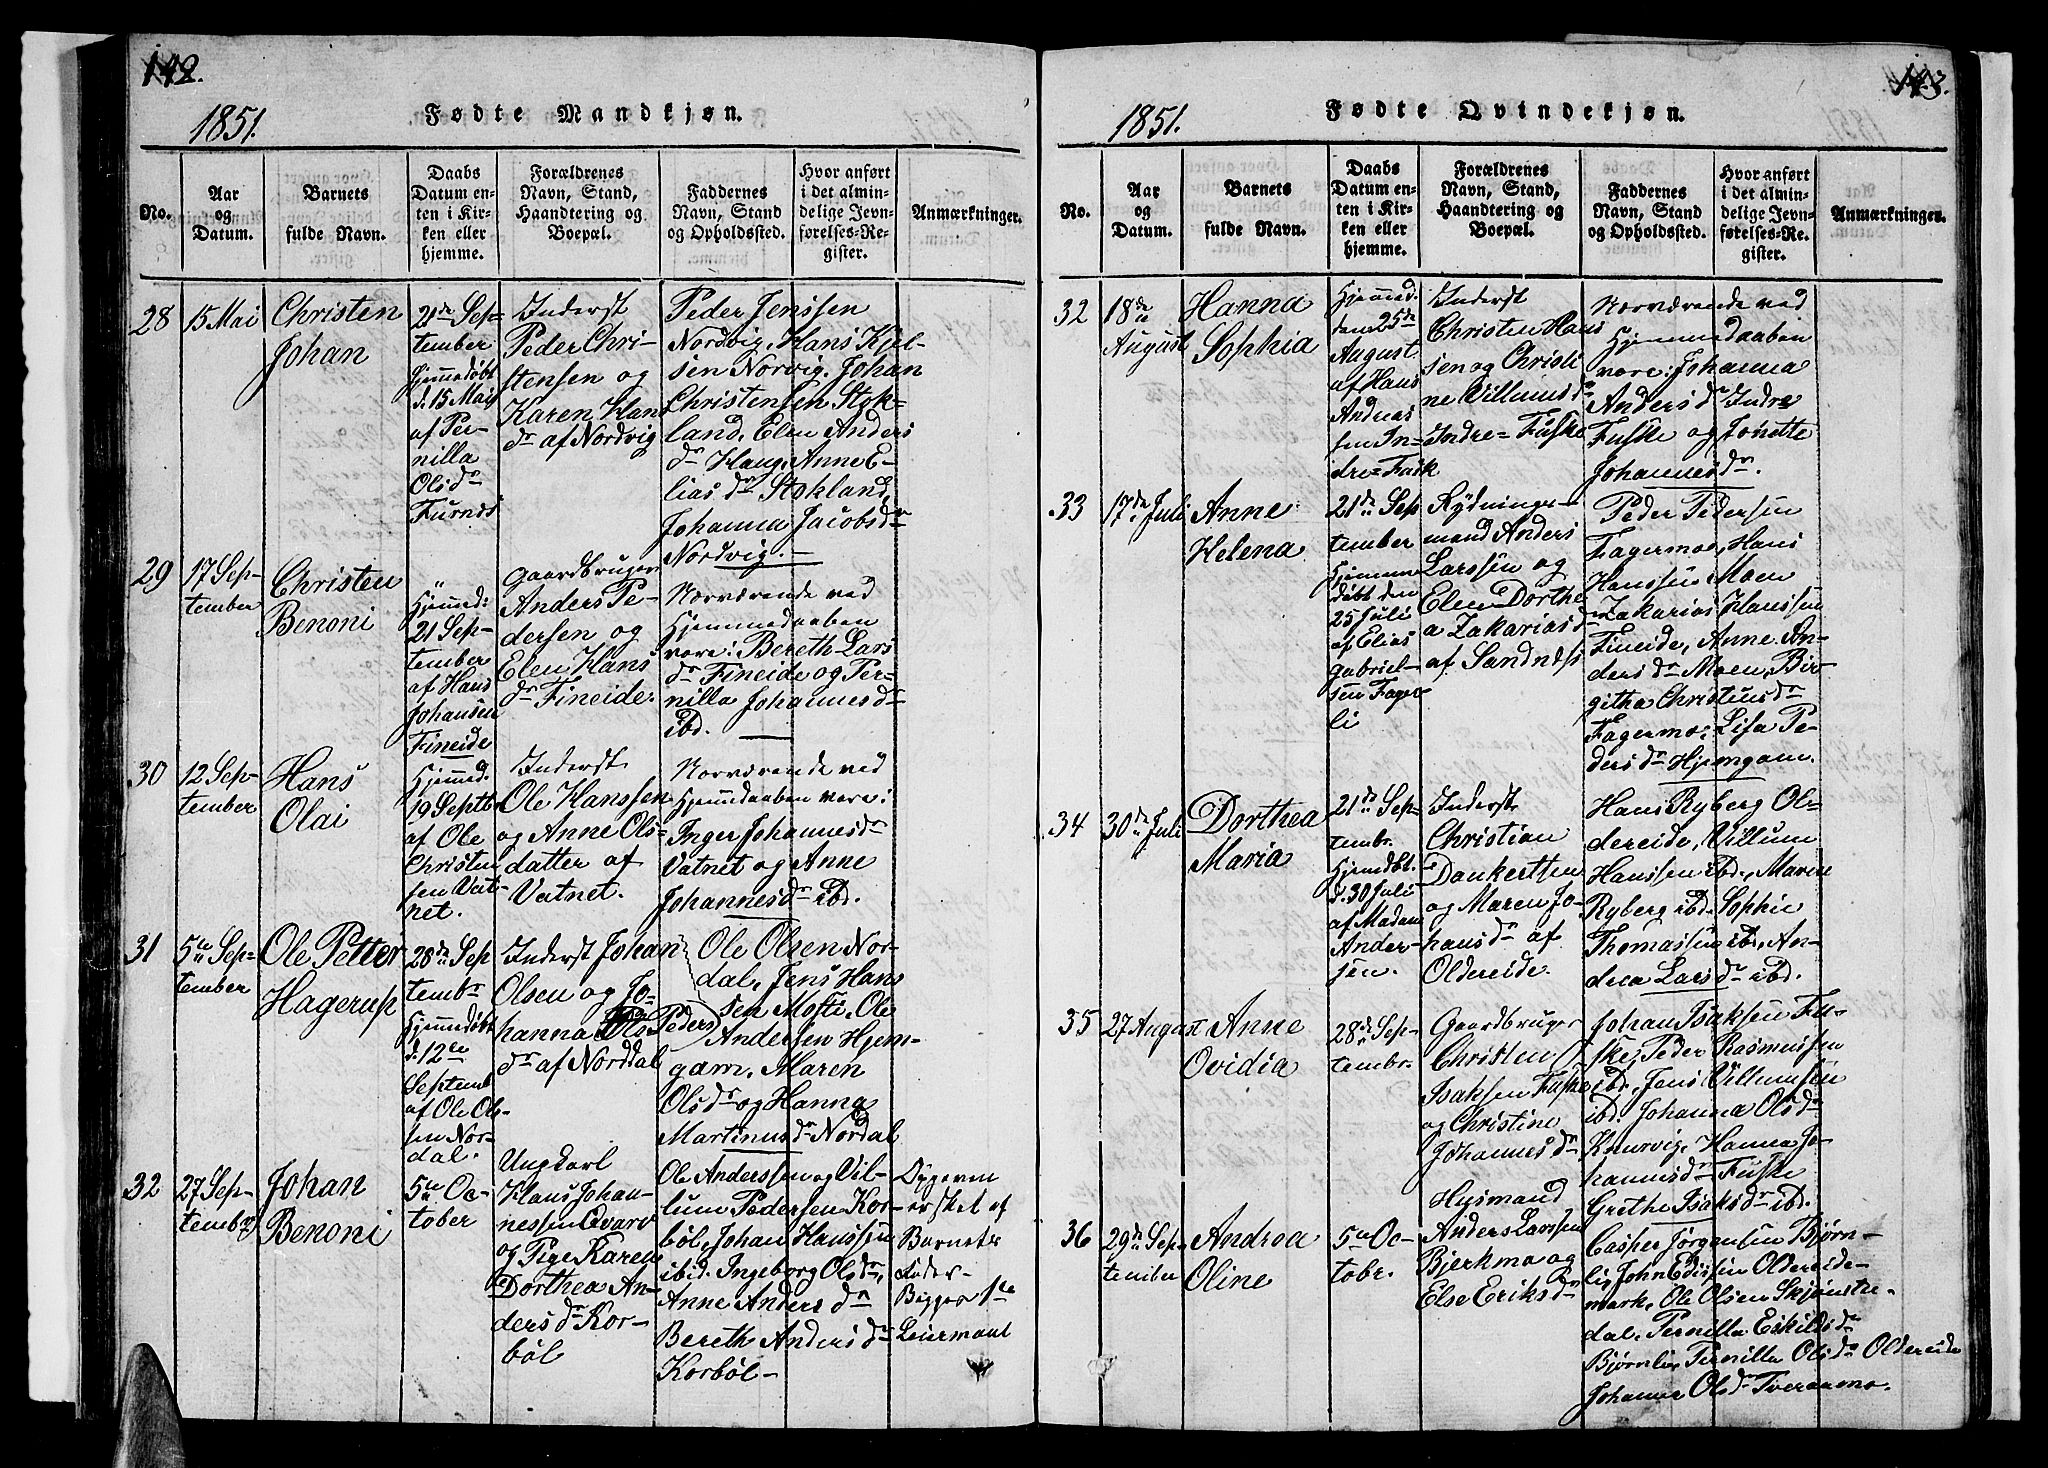 142.
1851.
Fødte Mandkjøn.
No.
Aar
og
Datum.
Barnets
fulde Navn.
Daabs
Datum en-
ten i Kir-
ken eller
hjemme.
Forældrenes
Navn, Stand,
Haandtering og
Boepæl.
Faddernes
Navn, Stand
og Opholdssted.
Hvor anført
i det almin-
delige Jevn-
førelses-Re-
gister.
Anmærkninger.
28
15 Mai
Christen
Johan
21de Sep-
tember
Hjemmedøbt
d. 15 Mai
af Per-
nilla
Olsdr
Furnes
Inderst
Peder Chri-
stensen og
Karen Hans
dr af Nordvig
Peder Jenssen
Nordvig, Hans Kjel-
sen Norvig, Johan
Christensen Stok-
land, Elen Anders
dr Haug, Anne E-
lias dr Stokland,
Johanna Jacobsdr
Nordvig.
29
17 Sep-
tember
Christen
Benoni
"
Hjemmed:
21 Sep-
tember
af Hans
Johansen
Fineide
Gaardbruger
Anders Pe-
dersen og
Elen Hans
dr Fineide.
Nærværende ved
Hjemmedaaben
vare: Bereth Lars
dr Fineide og Per-
nilla Johannesdr
ibd.
30
12 Sep-
tember
Hans
Olai
Hjemmed.
19 Septbr
af Ole
Christen
sen Vat-
net.
Inderst
Ole Hanssen
og Anne Ols-
datter af
Vatnet.
Nærværende ved
Hjemdaaben vare:
Inger Johannesdr
Vatnet og Anne
Johannesdr ibd.
31
5te Sep-
tember
Ole Petter
Hagerup
28de Sep
tembr
Hjemmedøbt
d. 12te
Septemb
af Ole Ol-
sen Nor-
dal.
Inderst Johan
Olsen og Jo-
hanna Peders
dr af Norddal
Ole Olsen Nor-
dal, Jens Hans
sen Mosti, Ole
Andersen Hjem-
gam, Maren
Olsdr og Hanna
Martinusdr Nordal
32
27 Sep-
tembr
Johan
Benoni
5te Oc-
tober
Ungkarl
Hans Johan-
nessen Qvarv
og Pige Karen
Dorthea An-
dersdr Kor-
bøl
Ole Anderssen og Vil-
lum Pedersen Kor-
bøl, Johan Hanssen
ibid. Ingeborg Olsdr,
Anne Anders dr
Bereth Anders dr
Korbøl-
Opgeven
ersket af
Barnets
Fader-
Begges 1ste
Leiermaal
143.
1851.
Fødte Qvindekjøn.
No.
Aar
og
Datum.
Barnets
fulde Navn.
Daabs
Datum en-
ten i Kir-
ken eller
hjemme.
Forældrenes
Navn, Stand,
Haandtering og
Boepæl.
Faddernes
Navn, Stand
og Opholdssted.
Hvor anført
i det almin-
delige Jevn-
førelses-Re-
gister.
Anmærkninger.
32
18de
August
Hanna
Sophia
Hjemmed.
den 25de
August
af Hans
Andreas
sen In-
dre=Fusk
Inderst
Christen Hans
sen og Christi
ne Villumsdr
Indre=Fuske
Nærværende ved
Hjemmedaaben
vare: Johanna
Andersdr Indre
Fuske og Jonette
Johannesdr.
33
17de Juli
Anne
Helena
21de Sep
tember
Hjemme
døbt den
25 Juli
af Elias
Gabriel-
sen Fager-
li
Rydnings-
mand Anders
Larssen og
Elen Dorthe
a Zakariasdr
af Sandnæs
Peder Pedersen
Fagermo, Hans
Hanssen Moen
Zakarias Hanssen
Fineide, Anne An-
dersdr Moen, Bir-
githa Christensdr
Fagermo, Lisa Pe-
dersdr Hjemgam.
34
30de Juli
Dorthea
Maria
21de Sep-
tembr.
Hjemdbt.
d. 30 Juli
af Madam
Ander-
sen.
Inderst
Christian
Dankertsen
og Maren Jo-
hansdr af
Oldereide.
Hans Ryberg Ol-
dereide, Villum
Hanssen ibd., Maren
Ryberg ibd. Sophie
Thomassen ibd., An-
drea Larsdr ibd.
35
27 August
Anne
Ovidia
28de Sep-
tembr.
Gaardbruger
Christen
Isaksen Fuske
og Christine
Johannesdr
Johan Isaksen Fu-
ske, Peder Rasmussen
ibd. Jens Villumsen
ibd. Johanna Olsdr
Knurvig, Hanna Jo-
hannesdr Fuske
Grethe Isaksdr ibd.
36
29de Sep-
tember
Andrea
Oline
5te Oc-
tobr.
Husmand
Anders Larssen
Bjerkmo og
Else Eriksdr
Casper Jørgensen Bjørn-
li, John Edissen Oldereide-
mark, Ole Olsen Skjønstu-
dal, Pernilla Eskildsdr
Bjørnli, Pernilla Olsdr Oldereide
Johanna Olsdr Tveraamo.